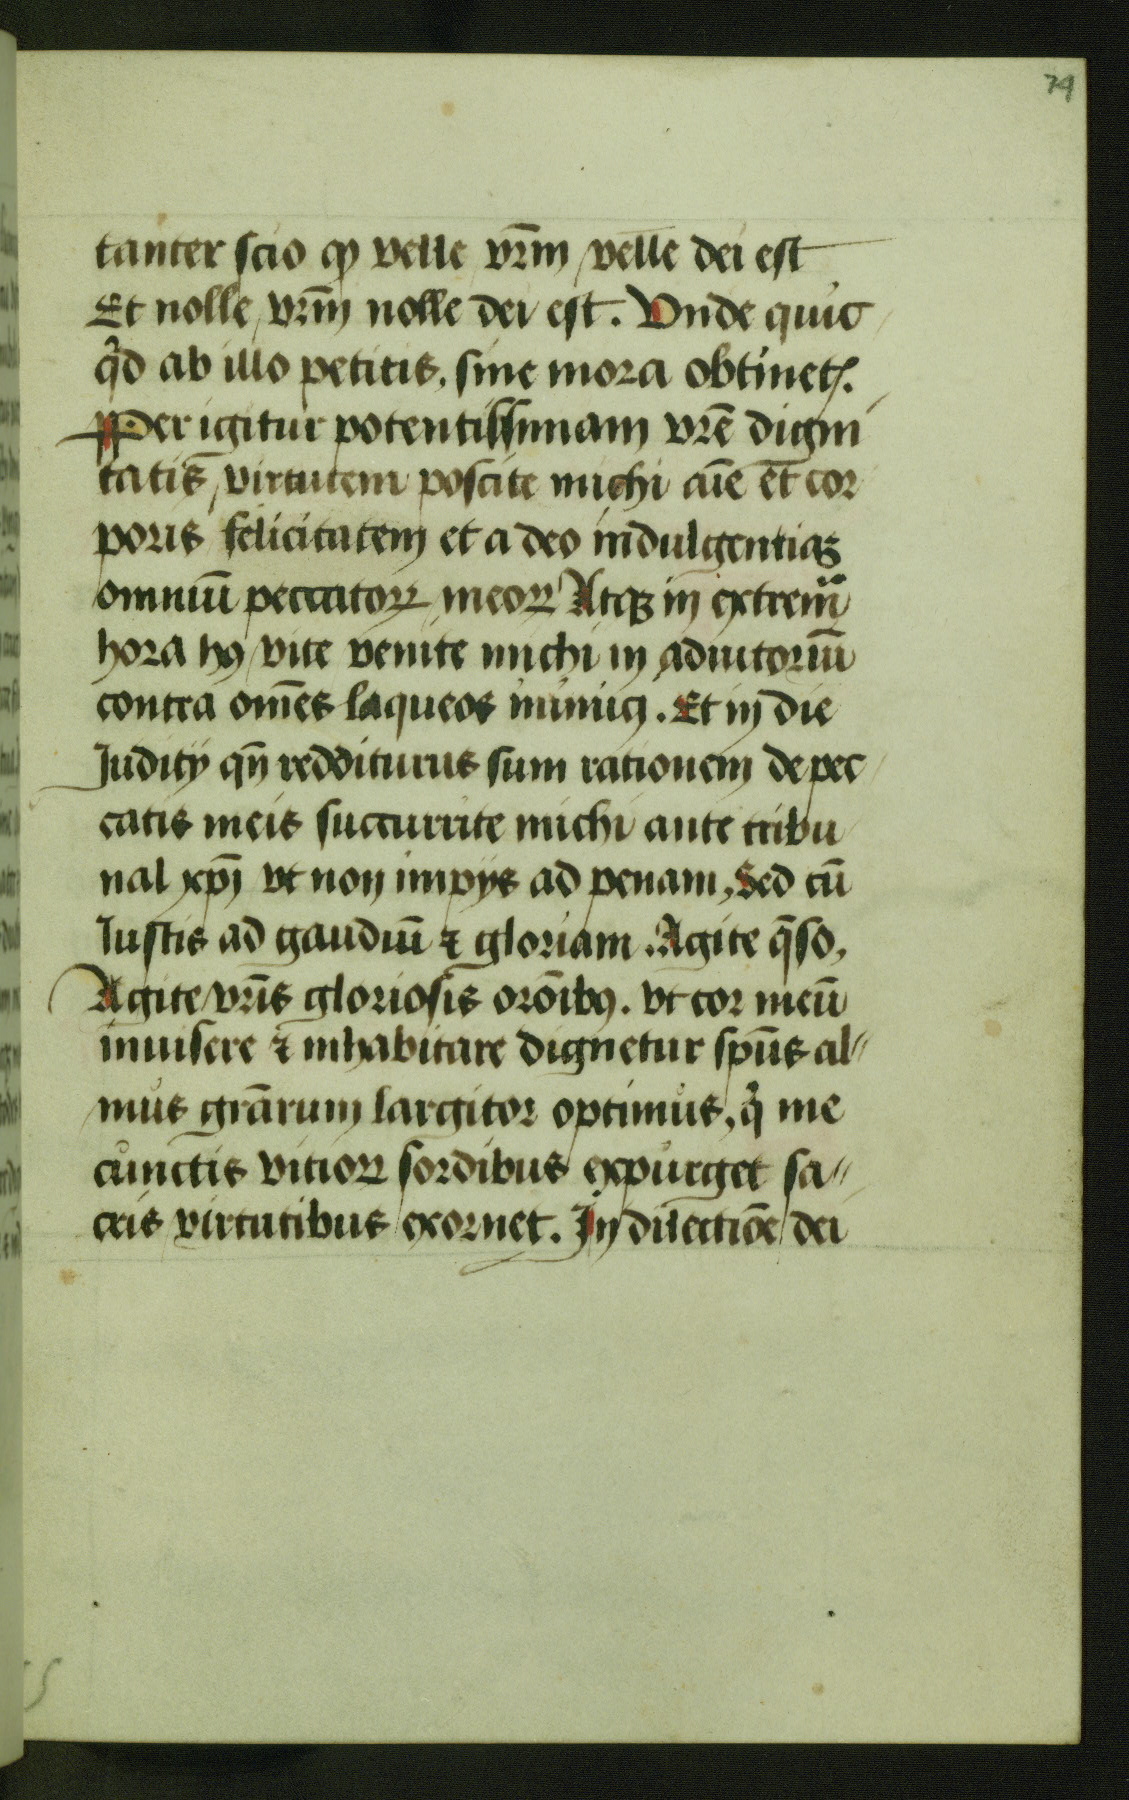 74
tanter scio ꝙ velle vr̄m velle dei est
Et nolle vr̄m nolle dei est. Vnde quic
qͥd ab illo petitis, sine mora obtinetꝭ.
Per igitur potentissimam vrē digni
tatis virtutem poscite michi aīe et cor
poris felicitatem et a deo indulgentiaꝫ
omniū peccatoꝝ meoꝝ Atqꝫ in extrema
hora hꝰ vite venite michi in adiutoriū
contra om̄es laqueos inimicj. Et in die
Iudicij qn̄ redditurus sum rationem de pec
catis meis succurrite michi ante tribu
nal xp̄i vt non impijs ad penam, Sed cū
Iustis ad gaudiū ⁊ gloriam. Agite q̄so,
Agite vr̄is gloriosis orōibꝰ. vt cor meū
inuisere ⁊ inhabitare dignetur sp̄us al⸗
mus grārum largitor optimus, qͥ me
cunctis vitioꝝ sordibus expurget sa⸗
cris virtutibus exornet. In dilectiōe dei